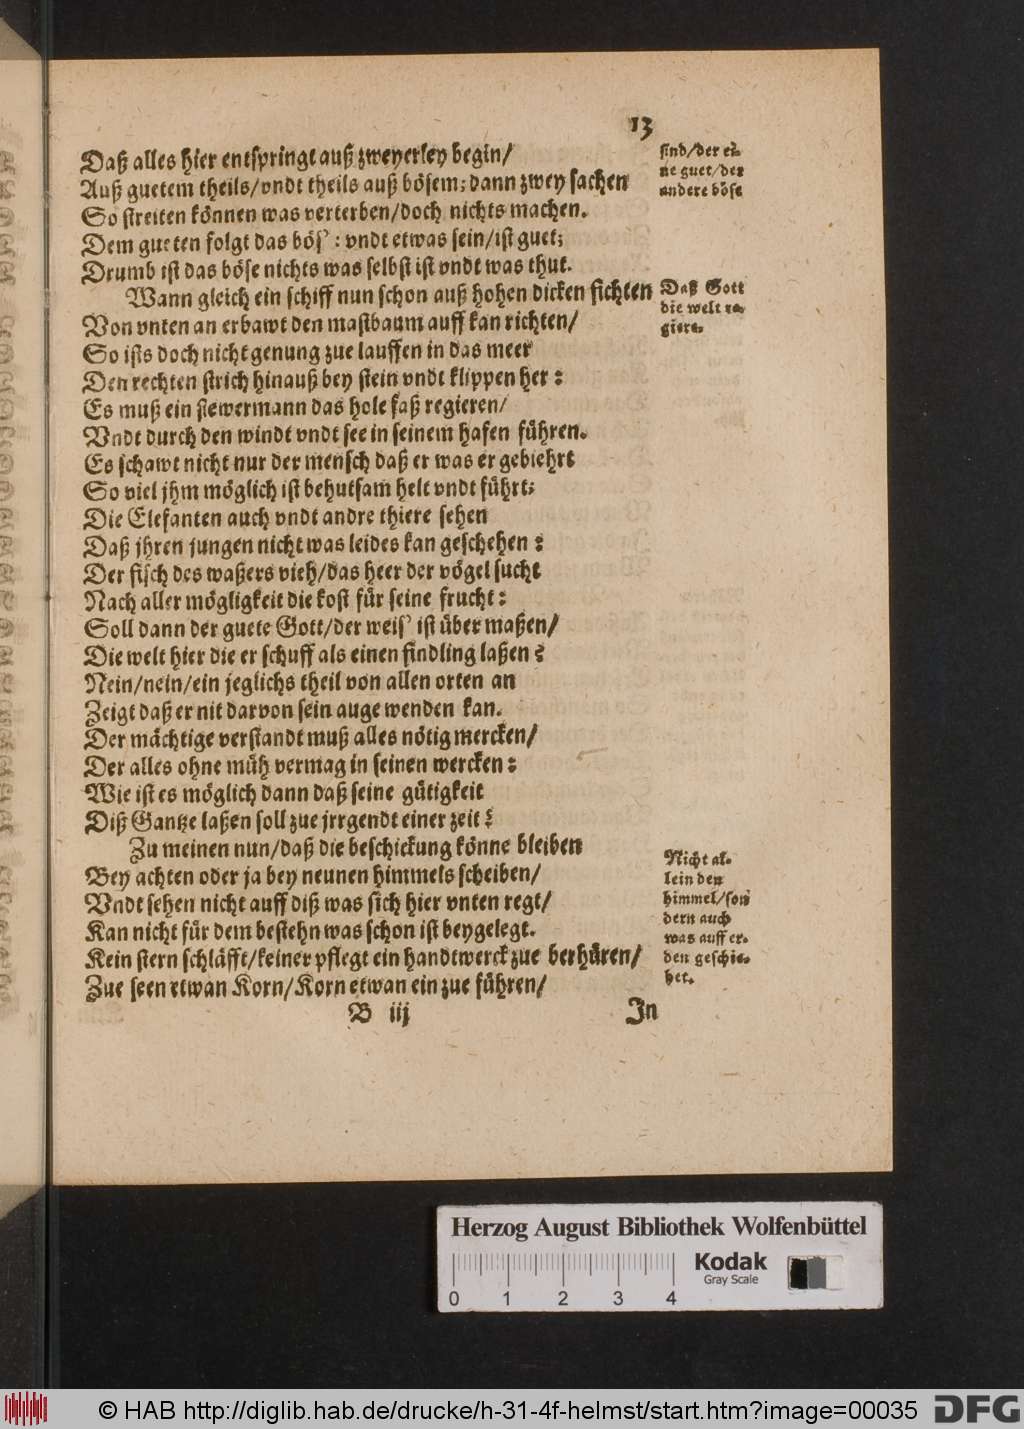 13
Daß alles hier entspringt auß zweyerley begin/
Auß guetem theils/vndt theils auß bösem; dann zwey sachen
So streiten können was verterben/doch nichts machen.
Dem gueten folgt das bös': vndt etwas sein/ist guet;
Drumb ist das böse nichts was selbst ist vndt was thut.
Wann gleich ein schiff nun schon auß hohen dicken fichten
Von vnten an erbawt den mastbaum auff kan richten/
So ists doch nicht genung zue lauffen in das meer
Den rechten strich hinauß bey stein vndt klippen her:
Es muß ein stewermann das hole faß regieren/
Vndt durch den windt vndt see in seinem hafen führen.
Es schawt nicht nur der mensch daß er was er gebiehrt
So viel jhm möglich ist behutsam helt vndt führt;
Die Elefanten auch vndt andre thiere sehen
Daß jhren jungen nicht was leides kan geschehen:
Der fisch des waßers vieh/das heer der vögel sucht
Nach aller mögligkeit die kost für seine frucht:
Soll dann der guete Gott/der weis' ist über maßen/
Die welt hier die er schuff als einen findling laßen?
Nein/nein/ein jeglichs theil von allen orten an
Zeigt daß er nit darvon sein auge wenden kan.
Der mächtige verstandt muß alles nötig mercken/
Der alles ohne müh vermag in seinen wercken:
Wie ist es möglich dann daß seine gütigkeit
Diß Gantze laßen soll zue jrrgendt einer zeit?
Zu meinen nun/daß die beschickung könne bleiben
Bey achten oder ja bey neunen himmels scheiben/
Vndt sehen nicht auff diß was sich hier vnten regt/
Kan nicht für dem bestehn was schon ist beygelegt.
Kein stern schläfft/keiner pflegt ein handtwerck zue berhüren/
Zue seen etwan Korn/Korn etwan ein zue führen/
B iij
In
sind/der ei-
ne guet/der
andere böse
Daß Gott
die welt re-
giere.
Nicht al-
lein den
himmel/son
dern auch
was auff er-
den geschie-
het.
Herzog August Bibliothek Wolfenbüttel
Kodak
Gray Scale
0 1 2 3 4
© HAB http://diglib.hab.de/drucke/h-31-4f-helmst/start.htm?image=00035
DFG